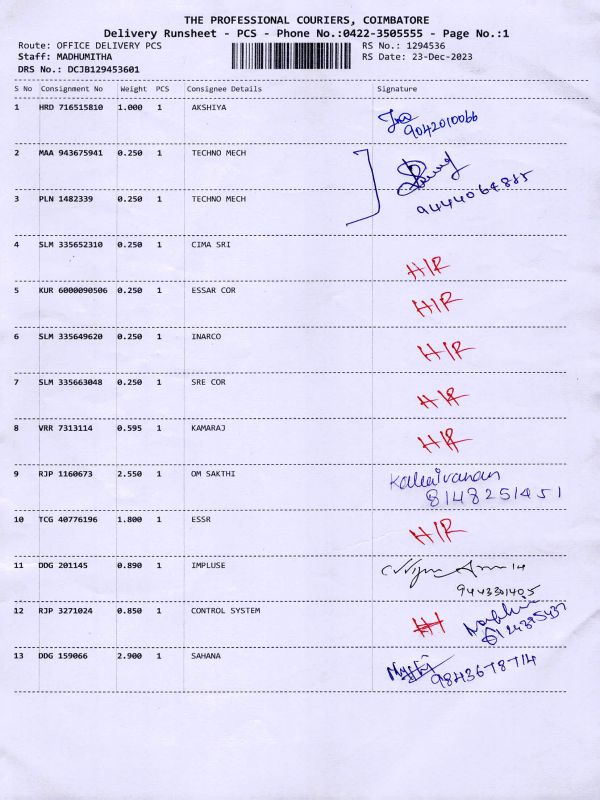 THE PROFESSIONAL COURIERS, COIMBATORE
Delivery Runsheet - PCS - Phone No.:0422-3505555 - Page No.:1
Route: OFFICE DELIVERY PCS RS No.: 1294536
Staff: MADHUMITHA RS Date: 23-Dec-2023
DRS No.: DCJB129453601
S No Consignment No Weight PCS Consignee Details Signature
1 HRD 716515810 1.000 1 AKSHIYA
9042010066
2 MAA 943675941 0.250 1 TECHNO MECH
3 PLN 1482339 0.250 1 TECHNO MECH
9444064885
4 SLM 335652310 0.250 1 CIMA SRI H/R
5 KUR 6000090506 0.250 1 ESSAR COR H/R
6 SLM 335649620 0.250 1 INARCO H/R
7 SLM 335663048 0.250 1 SRE COR H/R
8 VRR 7313114 0.595 1 KAMARAJ H/R
9 RJP 1160673 2.550 1 OM SAKTHI Kalaivanan
8148251451
10 TCG 40776196 1.800 1 ESSR H/R
11 DDG 201145 0.890 1 IMPLUSE
9443301405
12 RJP 3271024 0.850 1 CONTROL SYSTEM
13 DDG 159066 2.900 1 SAHANA
9843678714